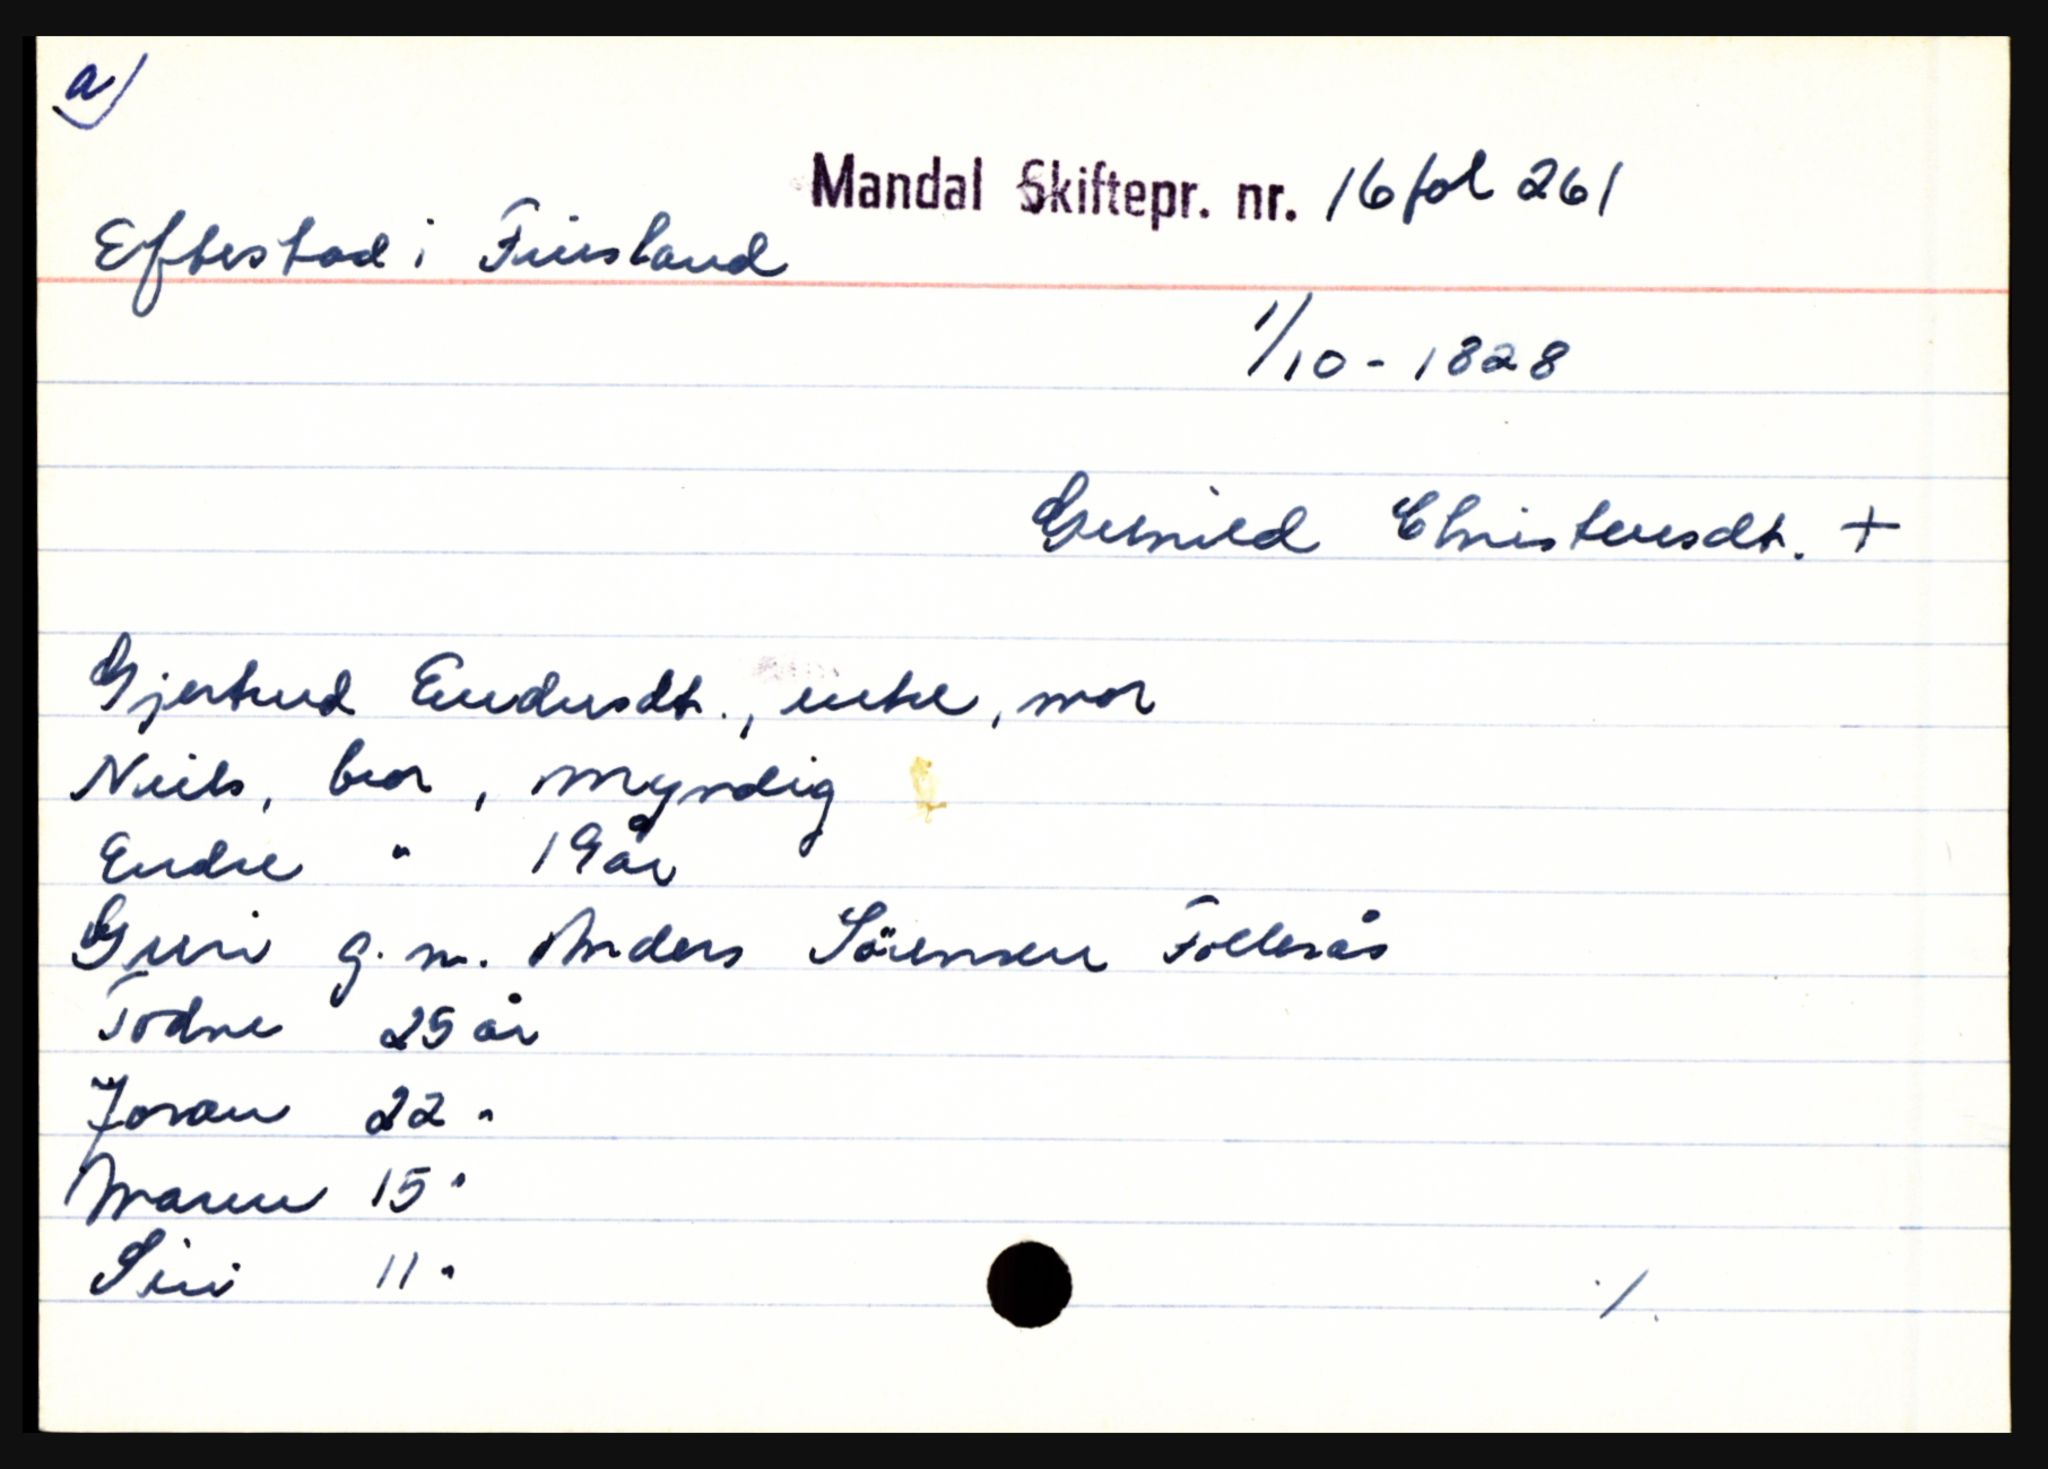 a)
Mandal Skiftepr. nr. 16 fol 261
Eftestad i Finsland
1/10 - 1828
Gunild Christensdt. +
Gjertrud Endresdt., enke, mor
Niels, bror, myndig
Endre " 19 år
Guri g. m. Anders Sörensen Follerås
Todne 25 år
Joran 22 "
Maren 15 "
Siri 11 "
./.